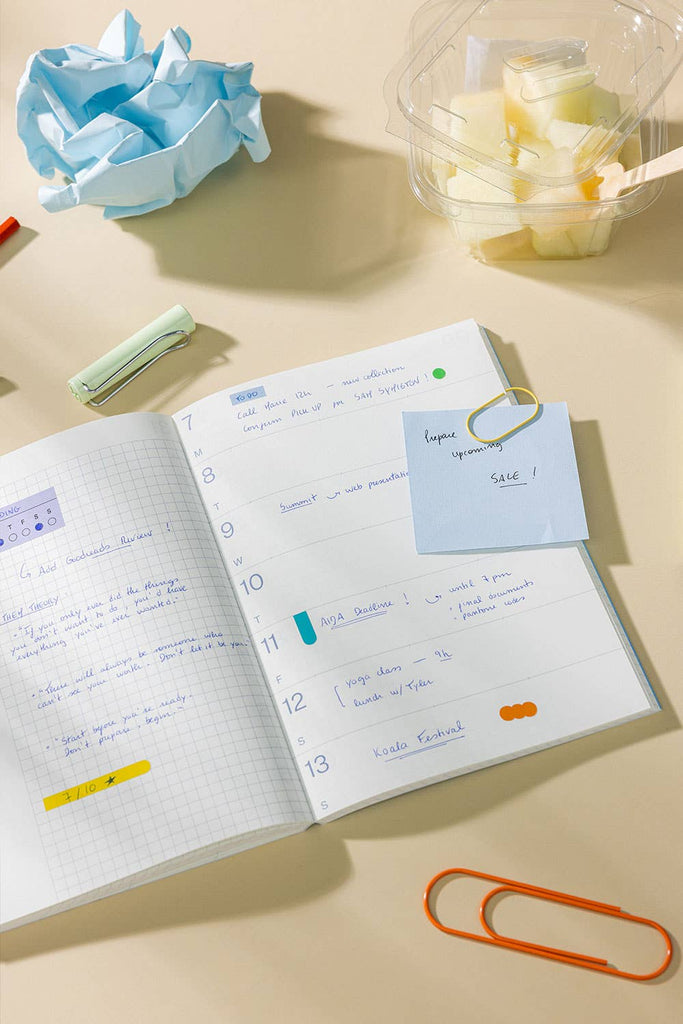 DING
T F S S
Add Goodreads Review !
THEM THEORY
"If you only ever did the things
you don't want to do, you'd have
everything you've ever wanted."
"There will always be someone who
can't see your worth. Don't let it be you."
"Start before you're ready.
Don't prepare, begin."
7/10
7
M
TO DO
Call Marie 12h - new collection
Confirm PICK UP for SAM
8
T
9
Summit web presentation
W
10
T
11
AIDA Deadline !
until 7 pm
final documents
pantone codes
F
12
yoga class - 9h
lunch w/ Tyler
S
13
Koala Festival
S
Prepare
upcoming
SALE !